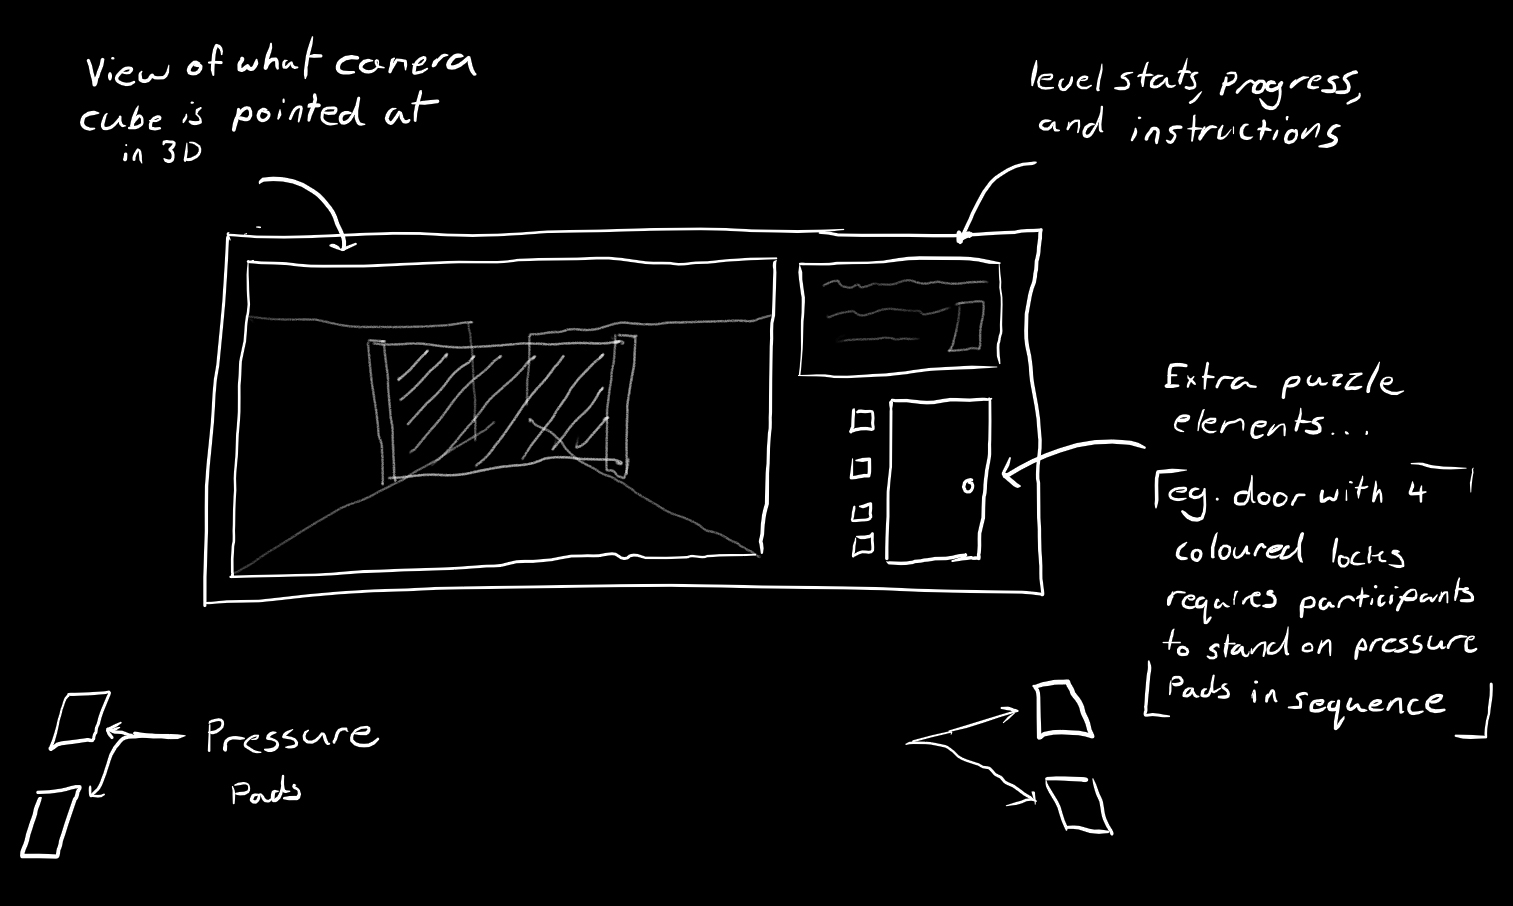 View of what camera
cube is pointed at
in 3D
level stats, progress,
and instructions
Extra puzzle
elements...
eg. door with 4
coloured locks
requires participants
to stand on pressure
Pads in sequence
Pressure
Pads